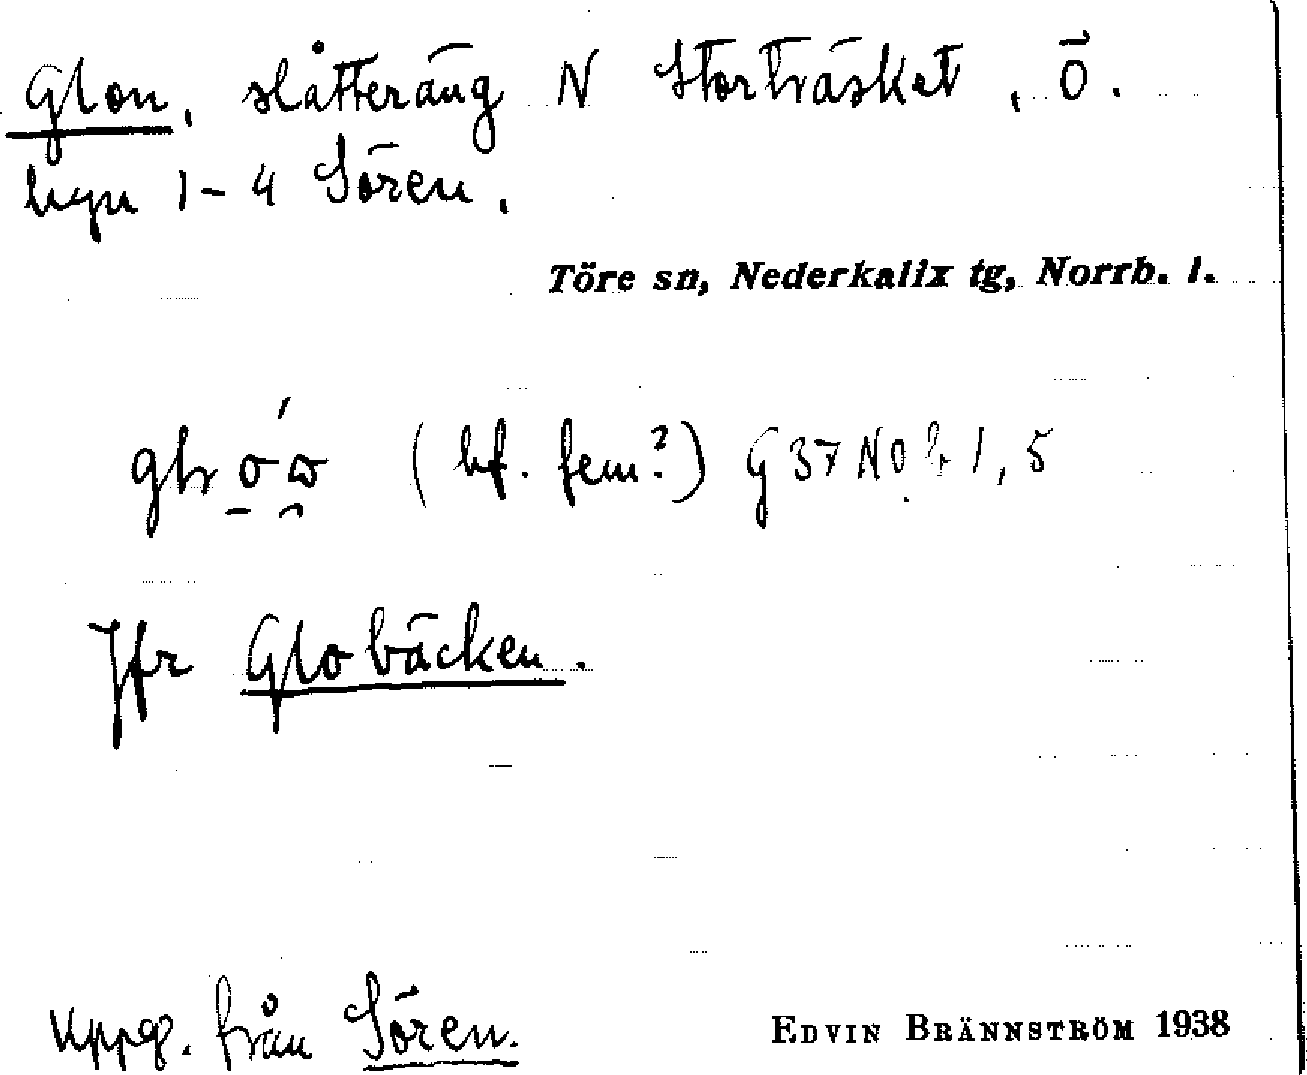 Glon, slåtteräng N Storträsket, Ö.
hgn 1-4 Sören.
Töre sn, Nederkalix tg, Norrb. l.
(bf. fem?) G 37 No b 1, 5
Jfr Globäcken.
Uppg. från Sören.
EDVIN BRÄNNSTRÖM 1938